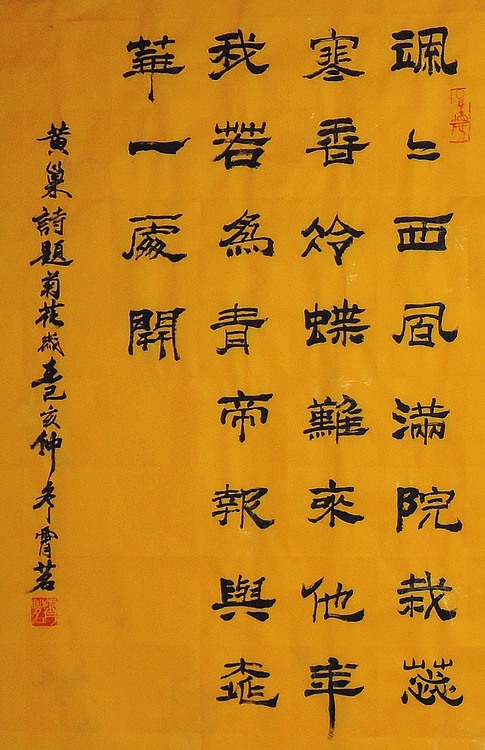 颯〻西風滿院栽蕊
寒香冷蝶難來他年
我若為青帝報與桃
華一處開
黃巢詩題菊花歲在己亥仲冬霄茗